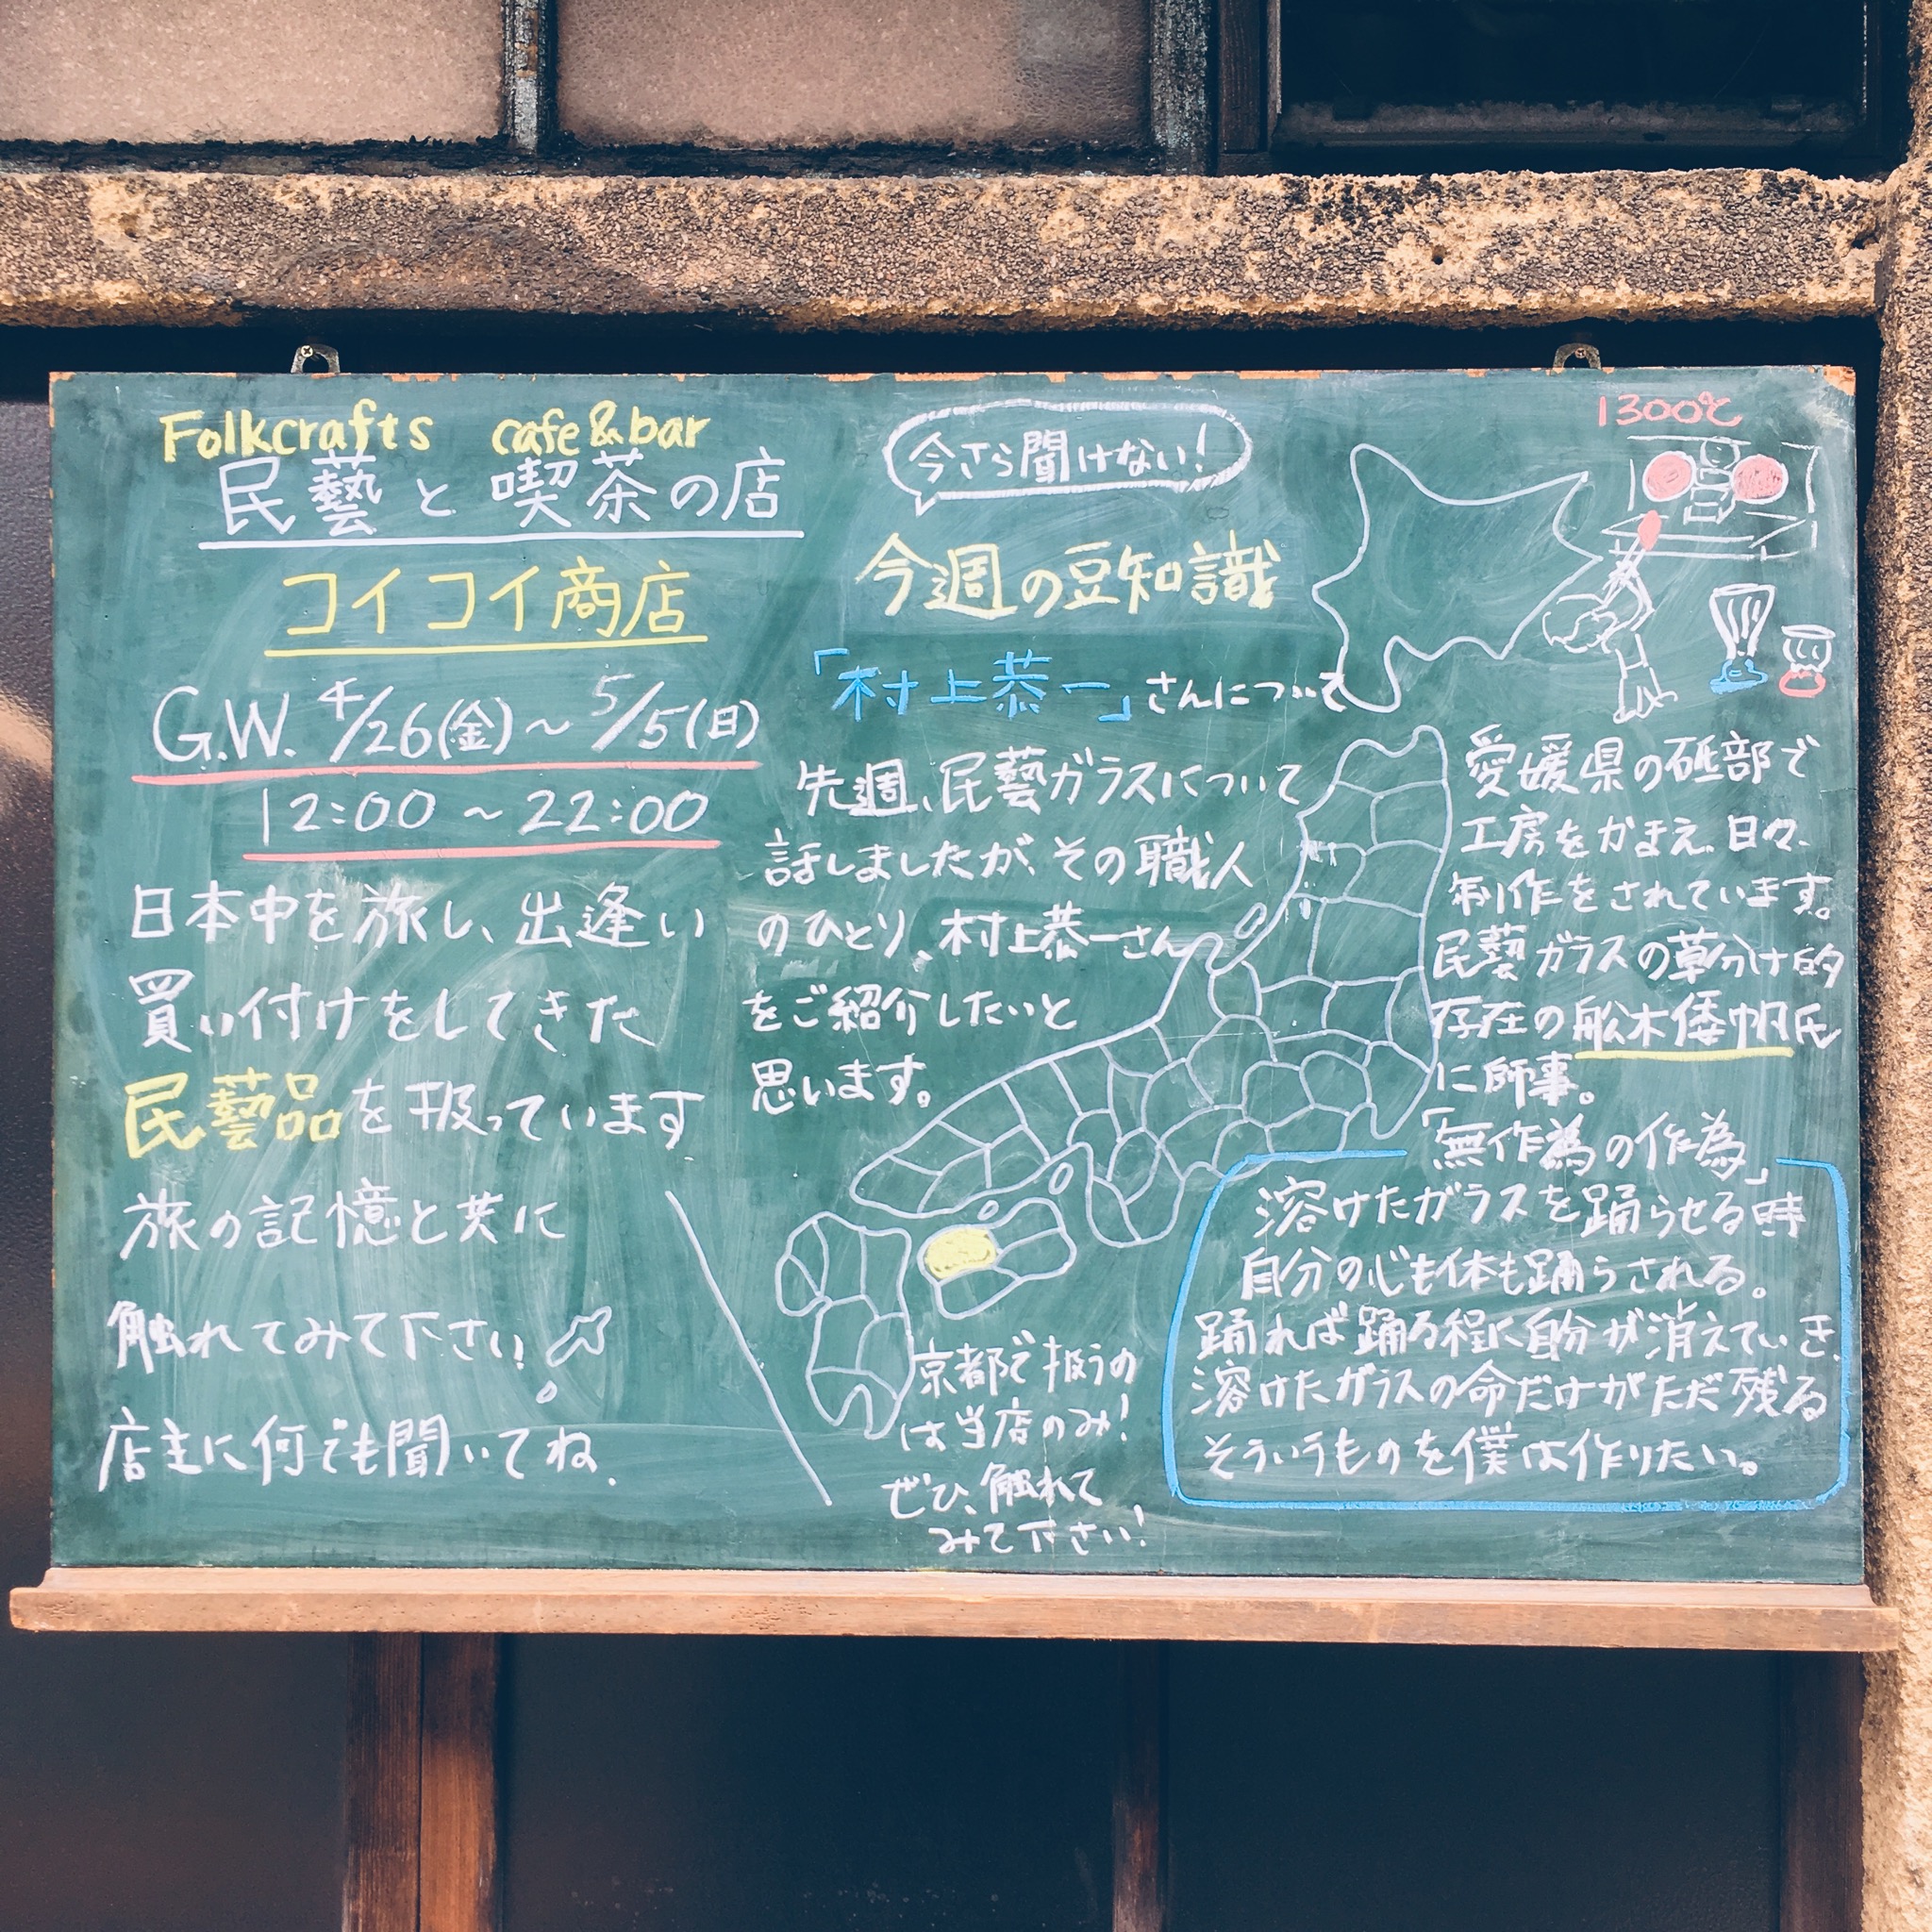 Folkcrafts cafe&bar
民藝と喫茶の店
コイコイ商店
G.W. 4/26(金)～5/5(日)
12:00～22:00
日本中を旅し、出逢い
買い付けをしてきた
民藝品を扱っています
旅の記憶と共に
触れてみて下さい!
店主に何でも聞いてね.
今さら聞けない!
今週の豆知識
「村上恭一」さんについて
先週、民藝ガラスについて
話しましたが、その職人
のひとり、村上恭一さん
をご紹介したいと
思います。
京都で扱うの
は当店のみ!
ぜひ、触れて
みて下さい!
1300℃
愛媛県の砥部で
工房をかまえ、日々、
制作をされています。
民藝ガラスの草分け的
存在の舩木倭帆氏
に師事。
「無作為の作為」
溶けたガラスを踊らせる時
自分の心も体も踊らされる。
踊れば踊る程に自分が消えていき、
溶けたガラスの命だけがただ残る
そういうものを僕は作りたい。